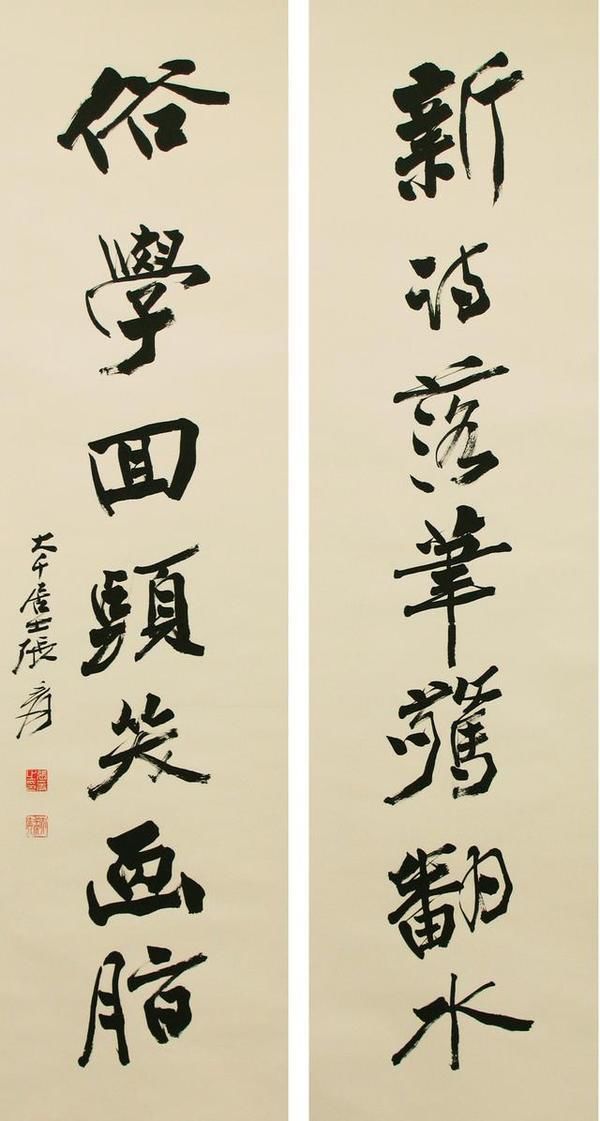 新詩落筆驚翻水
俗學回頭笑画脂
大千居士張爰